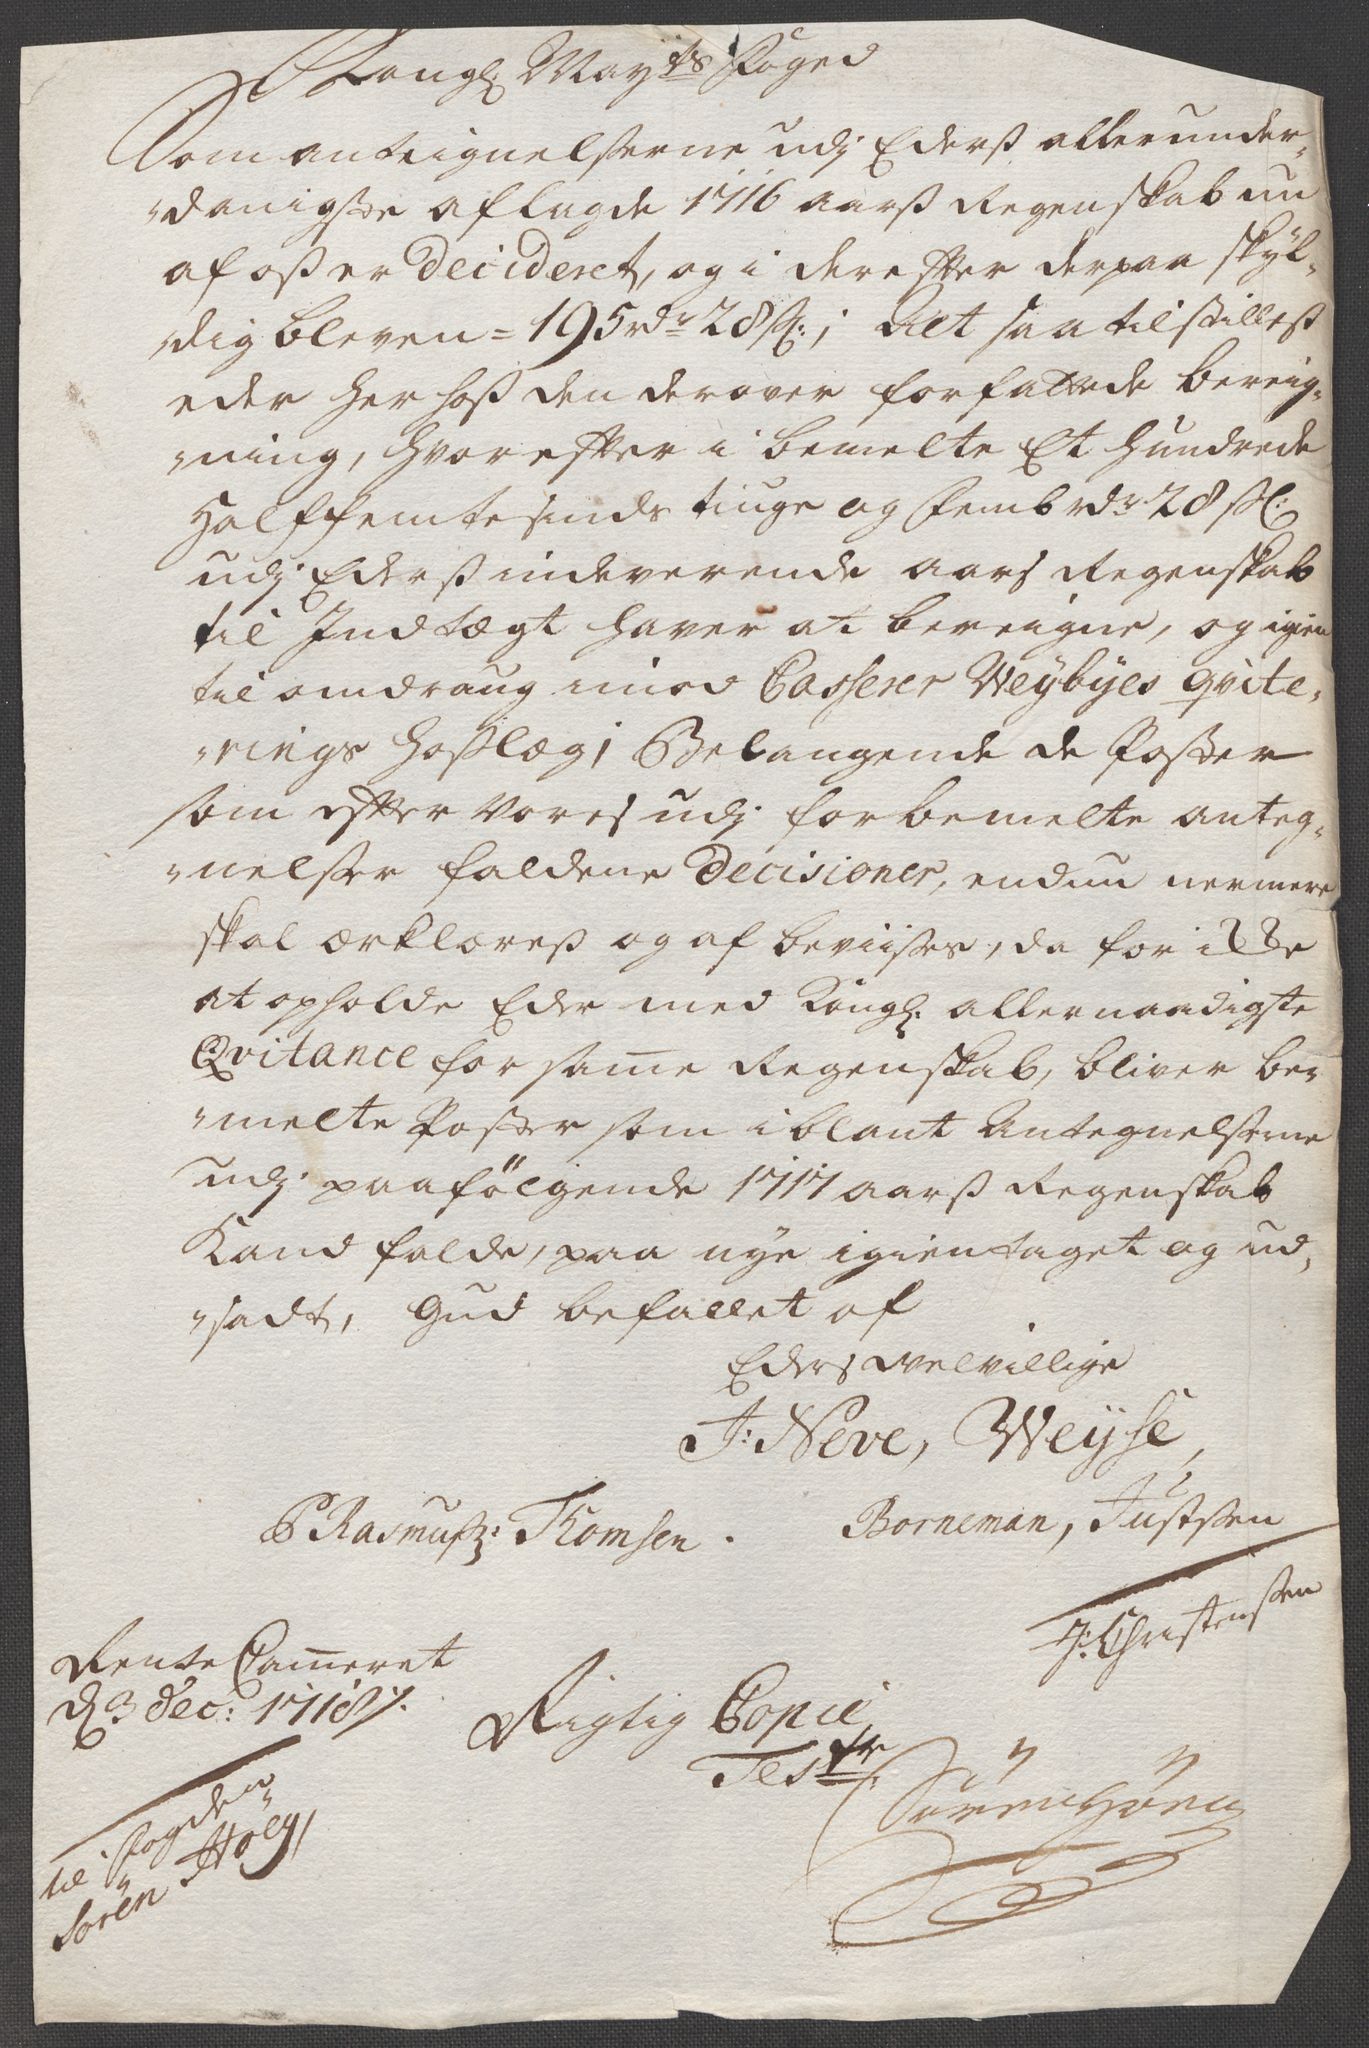 Kongl: May.ts Foged
Som anteignelserne udj Ederß allerunder-
danigste aflagde 1716 aarß Regenskab nu
af oß er Decideret, og i derefter derpaa skyl-
dig bleven = 195 rdr 28 sk:; Alt saa tilstilleß
eder her hoß den derover forfattede bereig-
ning, hvorefter i bemelte Et hundrede
Halffemtesinds tiuge og femb rdr 28 sk:
udj Ederß indeverende aars Regenskab
til Indtægt haver at bereigne, og igien
til omdraug imod Casserer Weybyes qvite-
rings hoßlæg; Belangende de Poster
som efter Vores udj forbemelte anteg-
nelser faldene Decisioner, endnu nermere
skal ærklæreß og af beviises, da for icke
at opholde Eder med Kongl: allernaadigste
Qvitance for same Regenskab, bliver be-
melte Poster som iblant Antegnelserne
udj paafölgende 1717 aarß Regenskab
Kand falde, paa nye igientaget og ud-
sadt, Gud befallet af
Eders velvillige
J: Neve, Weyse,
P Rasmuß: Thomsen. Borneman, Justsen
J: Christensen
Rente Cameret
d 3 dec: 1718
Rigtig Copie
Test:
Sörenhöeg
til fogden
Sören Höeg